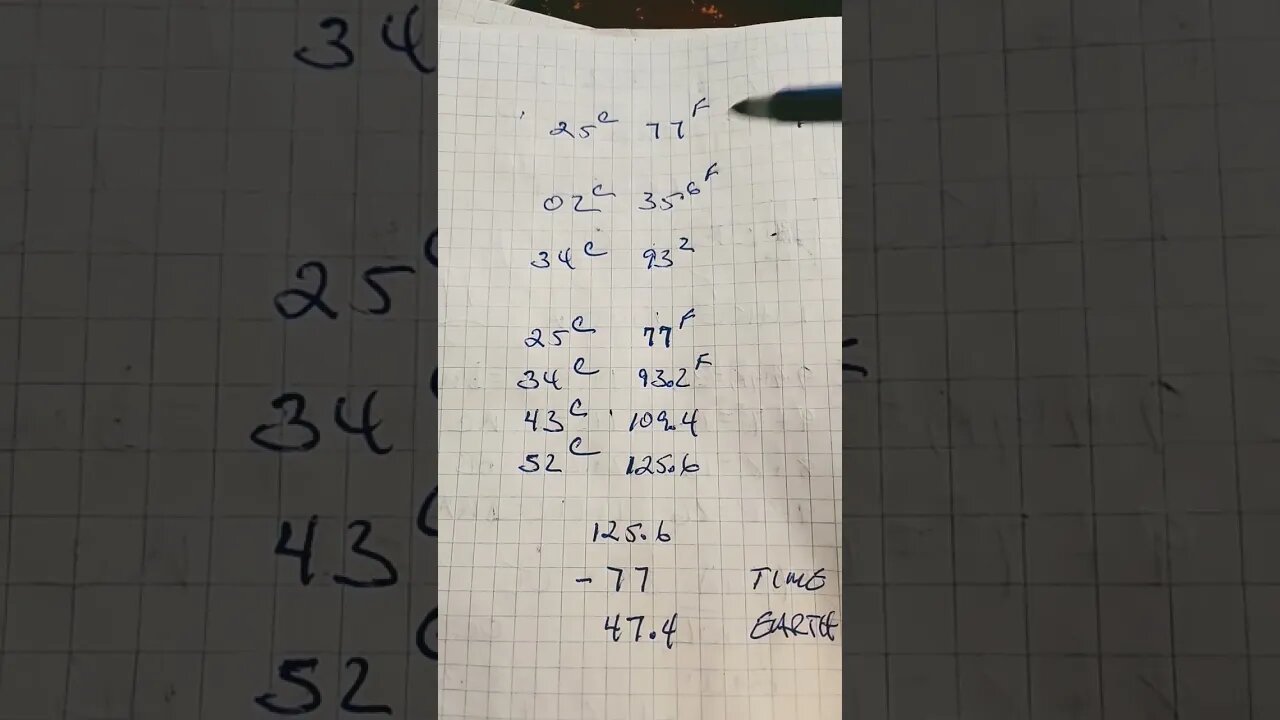 34
25^C 77^F
02^C 35.6^F
34^C 93^2
25^C 77^F
34^C 93.2^F
43^C 109.4
52^C 125.6
125.6
- 77 TIME
47.4 EARTH
25
34
43
52